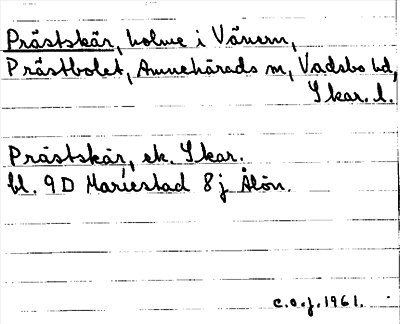 Prästskär, holme i Vänern,
Prästbolet, Amnehärads sn, Vadsbo hd,
Skar. l.
Prästskär, ek. Skar.
bl. 9D Mariestad 8j Ålön.
c.o.f. 1961.